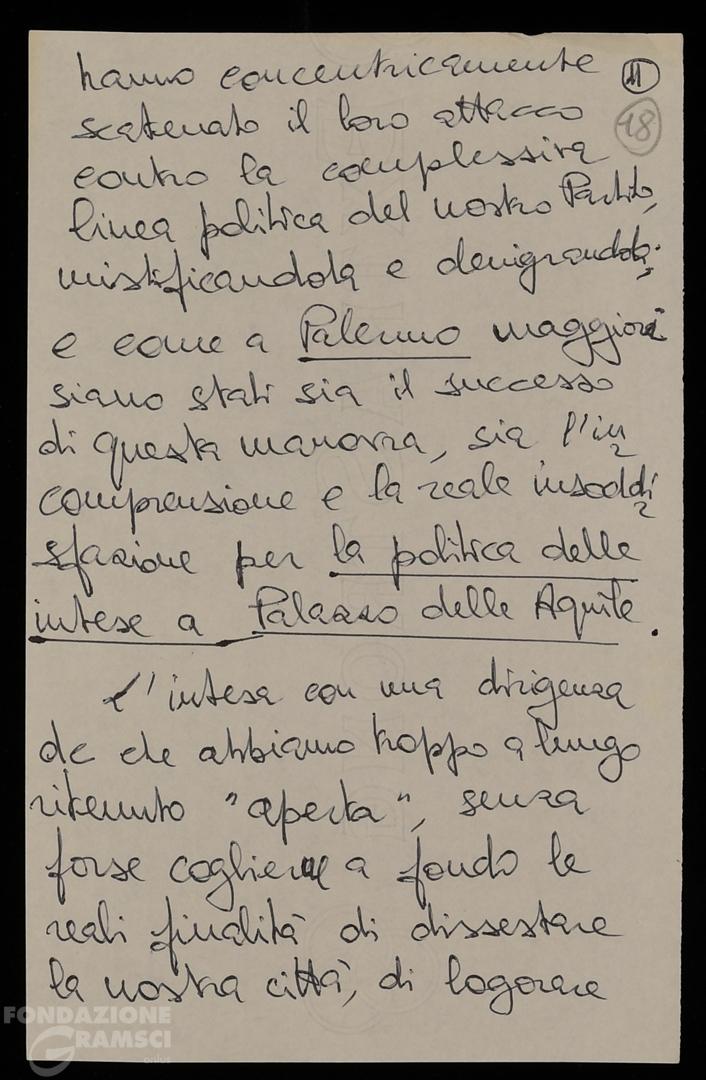 hanno concentricamente 11
scatenato il loro attacco 18
contro la complessiva
linea politica del nostro Partito,
mistificandola e denigrandola;
e come a Palermo maggiori
siano stati sia il successo
di questa manovra, sia l'in=
comprensione e la reale insoddi=
sfazione per la politica delle
intese a Palazzo delle Aquile.
L'intesa con una dirigenza
dc che abbiamo troppo a lungo
ritenuto "aperta", senza
forse coglierne a fondo le
reali finalità di dissestare
la nostra città, di logorare
FONDAZIONE
GRAMSCI
onlus